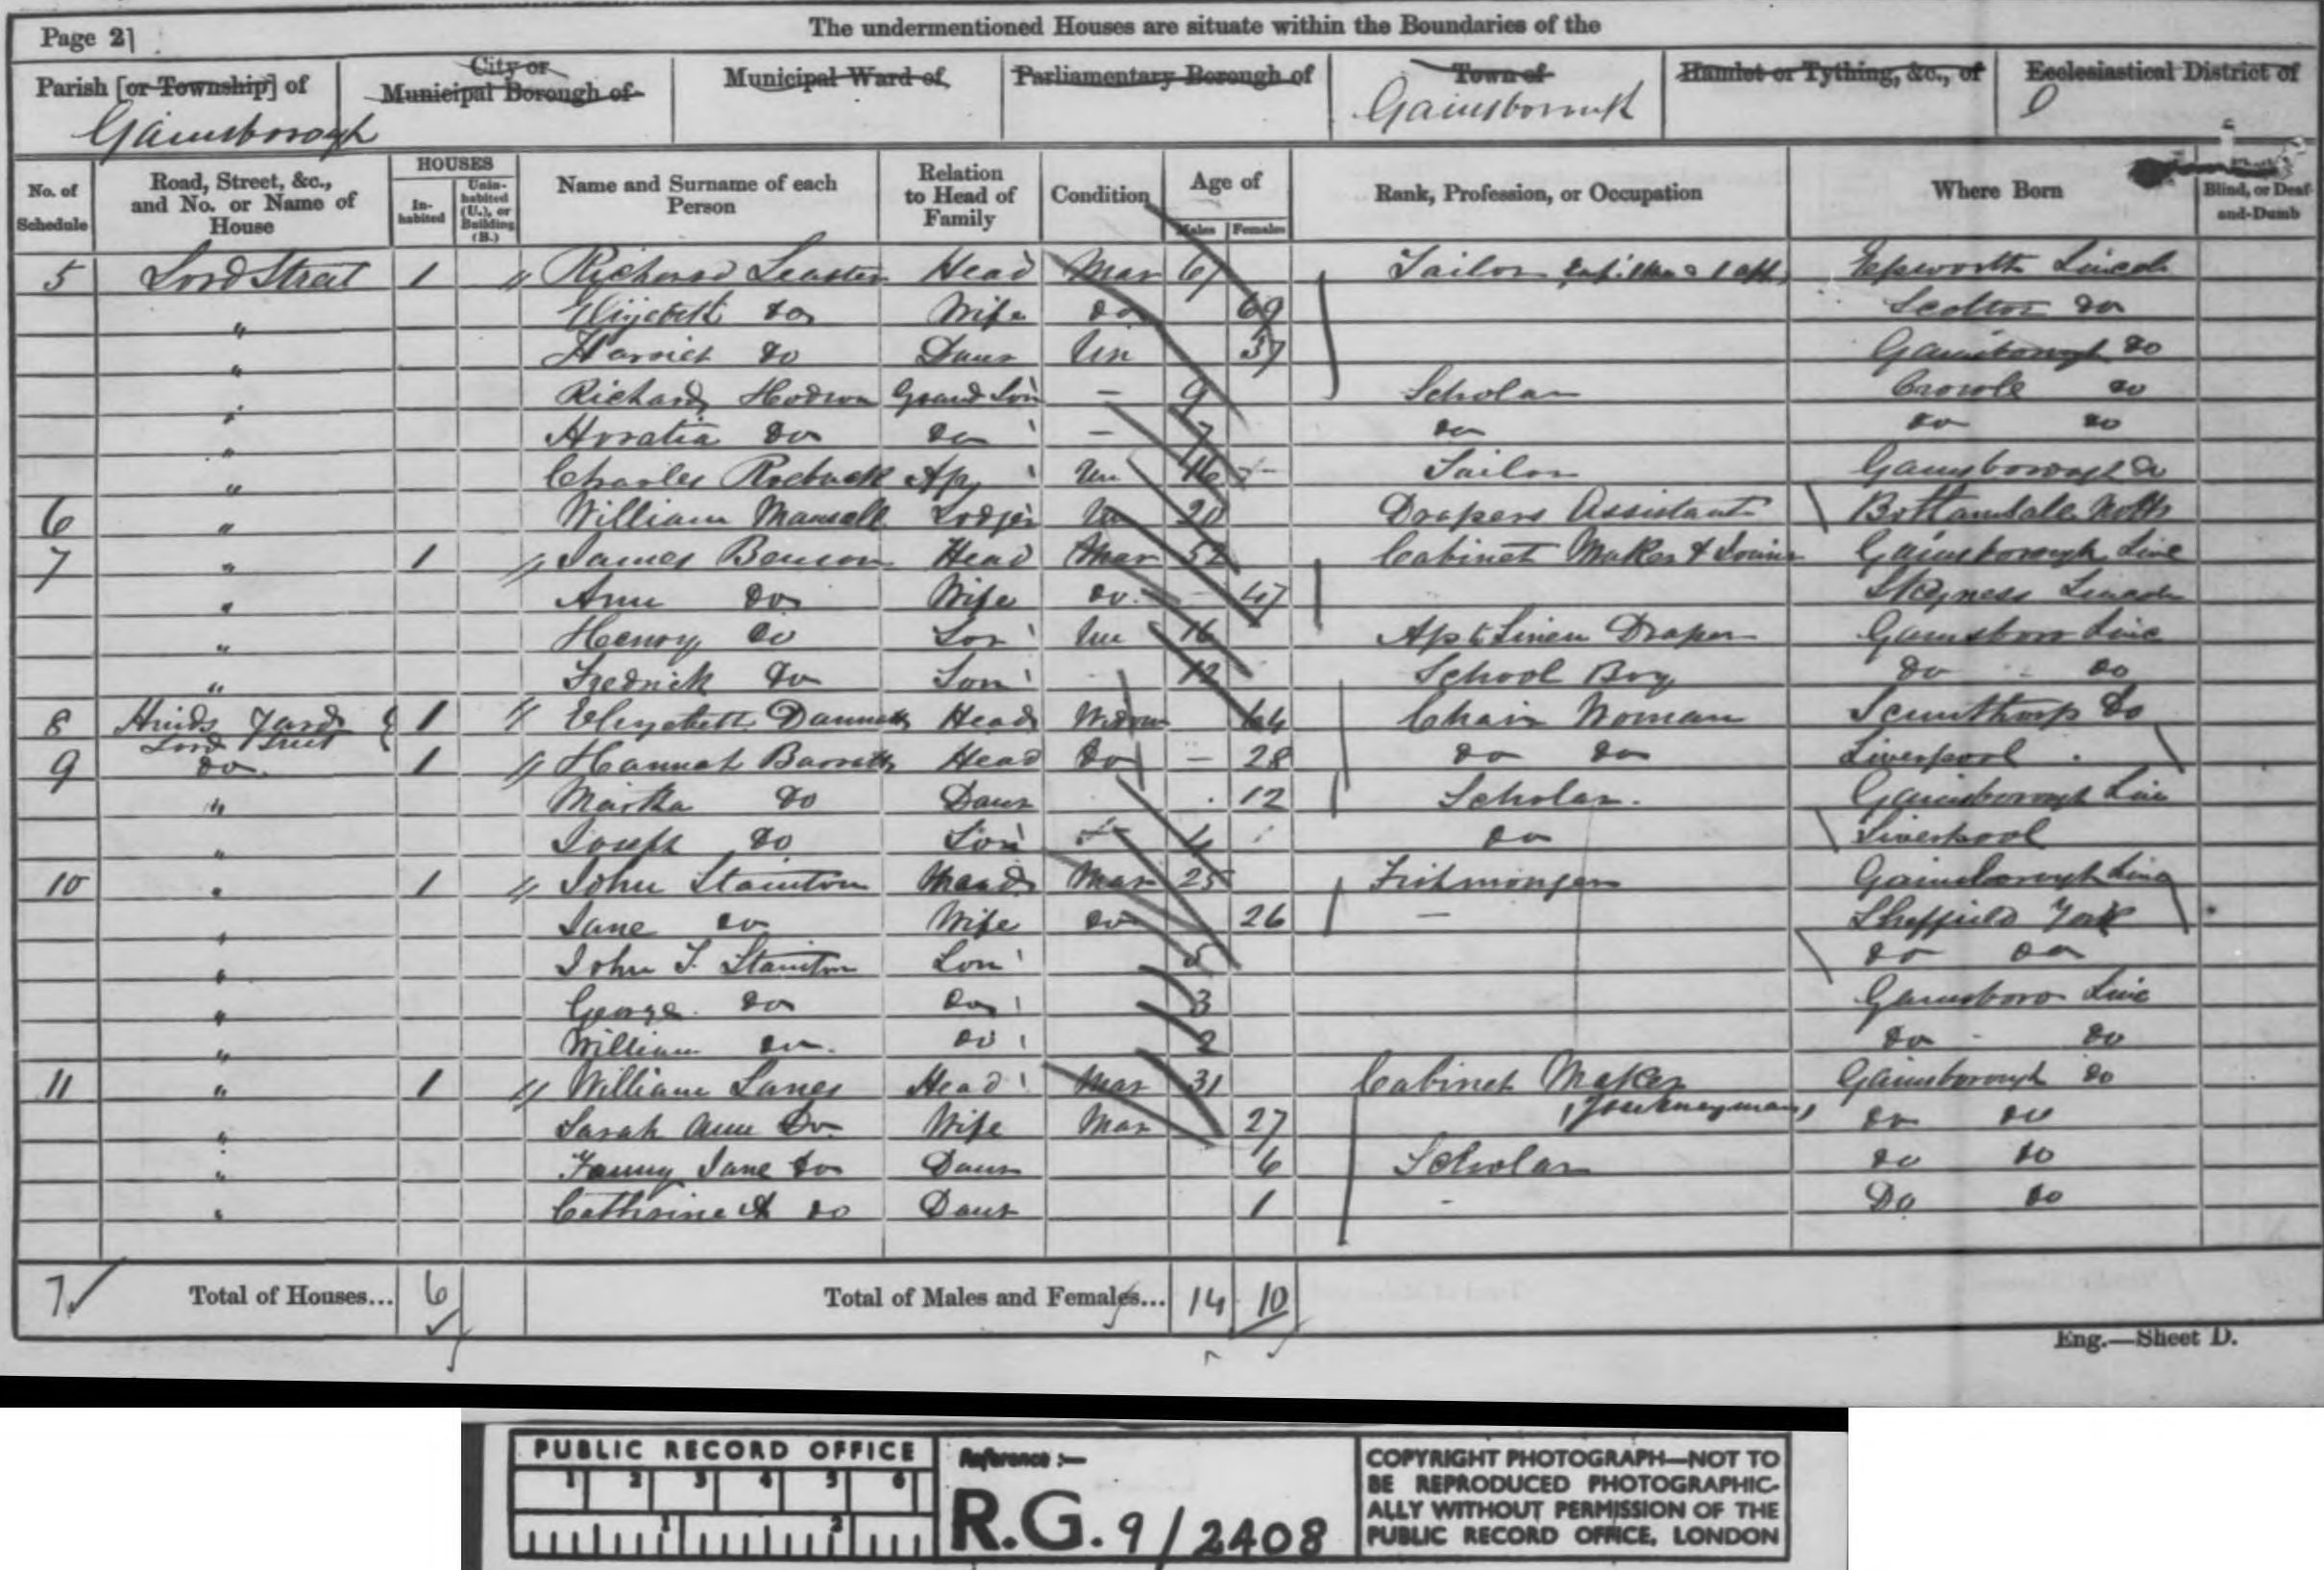 Page 21
The undermentioned Houses are situate within the Boundaries of the
Parish [or Township] of
City or
Municipal Borough of
Municipal Ward of
Parliamentary Borough of
Town of
Hamlet or Tything, &c., of
Ecclesiastical District of
Gainsborough
Gainsborough
No. of Schedule
Road, Street, &c., and No. or Name of House
HOUSES
In-habited
Unin-habited (U.), or Building (B.)
Name and Surname of each Person
Relation to Head of Family
Condition
Age of
Males
Females
Rank, Profession, or Occupation
Where Born
Blind, or Deaf-and-Dumb
5 Lord Street 1 Richard Head Mar 61 Tailor Epworth Lincoln
" Elizabeth do Wife do 69 Scotton do
" Harriet do Daur Un 37 Gainsborough do
" Richard Hodson Grand Son - 9 Scholar Crowle do
" Horatia do do - 7 do do do
" Charles Roebuck Ap Un 16 Tailor Gainsborough do
6 " William Mansell Lodger Un 20 Drapers Assistant Notts
7 " 1 James Benson Head Mar 52 Cabinet Maker & Joiner Gainsborough Linc
" Ann do Wife do - 47 Skegness Lincoln
" Henry do Son Un 16 Ap to Linen Draper Gainsboro Linc
" Fredrick do Son 12 School Boy do do
8 Hinds Yard Lord Street 1 Elizabeth Head Widow 64 Chair Woman Scunthorp do
9 do 1 Hannah Head do - 28 do do Liverpool
" Martha do Daur 12 Scholar Gainsborough Linc
" Joseph do Son 4 do Liverpool
10 " 1 John Stainton Head Mar 25 Fishmonger Gainsborough Linc
" Jane do Wife do 26 - Sheffield York
" John T. Stainton Son 5 do do
" George do do 3 Gainsboro Linc
" William do do 2 do do
11 " 1 William Lanes Head Mar 31 Cabinet Maker (Journeyman) Gainsborough do
" Sarah Ann Do Wife Mar 27 do do
" Fanny Jane do Daur 6 Scholar do do
" Cathrine A do Daur 1 - Do do
7 Total of Houses... 6 Total of Males and Females... 14 10
Eng.—Sheet D.
PUBLIC RECORD OFFICE
1 2 3 4 5 6
1 2
Reference :—
R.G. 9/2408
COPYRIGHT PHOTOGRAPH—NOT TO
BE REPRODUCED PHOTOGRAPHIC-
ALLY WITHOUT PERMISSION OF THE
PUBLIC RECORD OFFICE, LONDON